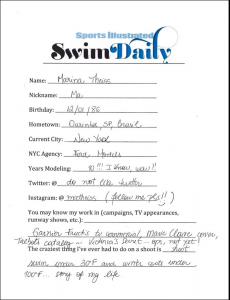 Sports Illustrated
Swim Daily
Name: Marina Theiss
Nickname: Ma
Birthday: 12/01/86
Hometown: Ourinhos, SP, Brasil
Current City: New York
NYC Agency: Ford Models
Years Modeling: 10!!! I know, wow!!
Twitter: @ do not like twitter
Instagram: @ mctheiss (follow me pls!!)
You may know my work in (campaigns, TV appearances,
runway shows, etc.):
Garnier Fructis tv commercial, Marie Claire cover,
Talbots catalog... Victoria's Secret... ops, not yet!
The craziest thing I've ever had to do on a shoot is shoot
swim under 30°F and winter coats under
100°F... story of my life